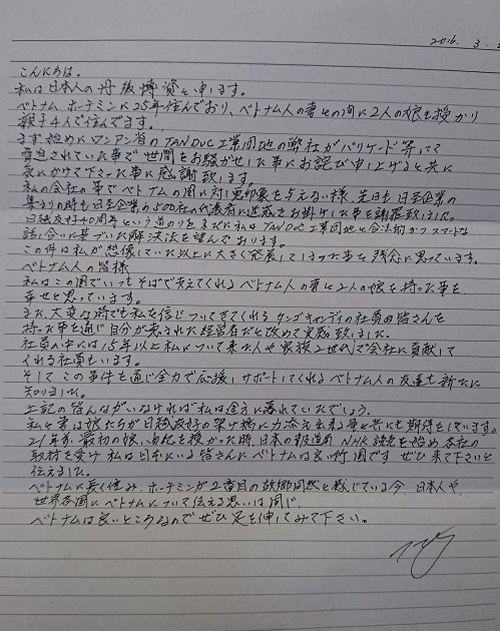 2016. 3.
こんにちは。
私は日本人の丹後博資と申します。
ベトナム ホーチミンに25年住んでおり、ベトナム人の妻との間に2人の娘も授かり
親子4人で住んでます。
まず始めにロンアン省のTAN DUC工業団地の弊社がバリケード等にて
脅迫されていた事で世間をお騒がせした事にお詫び申し上げると共に
気にかけて下さった事に感謝致します。
私の会社の事でベトナムの国に対し悪印象を与えない様、先日も日系企業の
集まりの時も日系企業の 社の代表者に迷惑をお掛けした事を謝罪致しました。
日越友好40周年という道のりを まだに私はTAN DUC工業団地と合法的かつスマートな
話し合いに基づいた解決法を望んでおります。
この件は私が想像していた以上に大きく発展してしまった事を残念に思っています。
ベトナム人の皆様
私はこの国でいつもそばで支えてくれるベトナム人の妻と2人の娘を持った事を
幸せと思っています。
また、大変な時でも私を信じついてきてくれるタンゴキャンディの社員の皆さんを
持った事を通じ自分が恵まれた経営者だと改めて実感致しました。
社員の中には15年以上私について来た人や家族2世代で会社に貢献して
くれる社員もいます。
そして この事件を通じ全力で応援しサポートしてくれるベトナム人の友達も新たに
知りました。
上記の皆んながいなければ私は途方に暮れていたでしょう。
私と妻は娘たちが日越友好の架け橋に力添え出来る事と共にも期待をしています。
21年前 最初の娘、 を授かった時、日本の報道局 NHK 読売を始め各社の
取材を受け 私は日本にいる皆さんにベトナムは良い所 国です ぜひ来て下さいと
伝えました。
ベトナムに長く住み、ホーチミンが2番目の故郷同然と感じている今、日本人や、
世界各国にベトナムについて伝える思いは同じ、
ベトナムは良いところなのでぜひ足を伸してみて下さい。